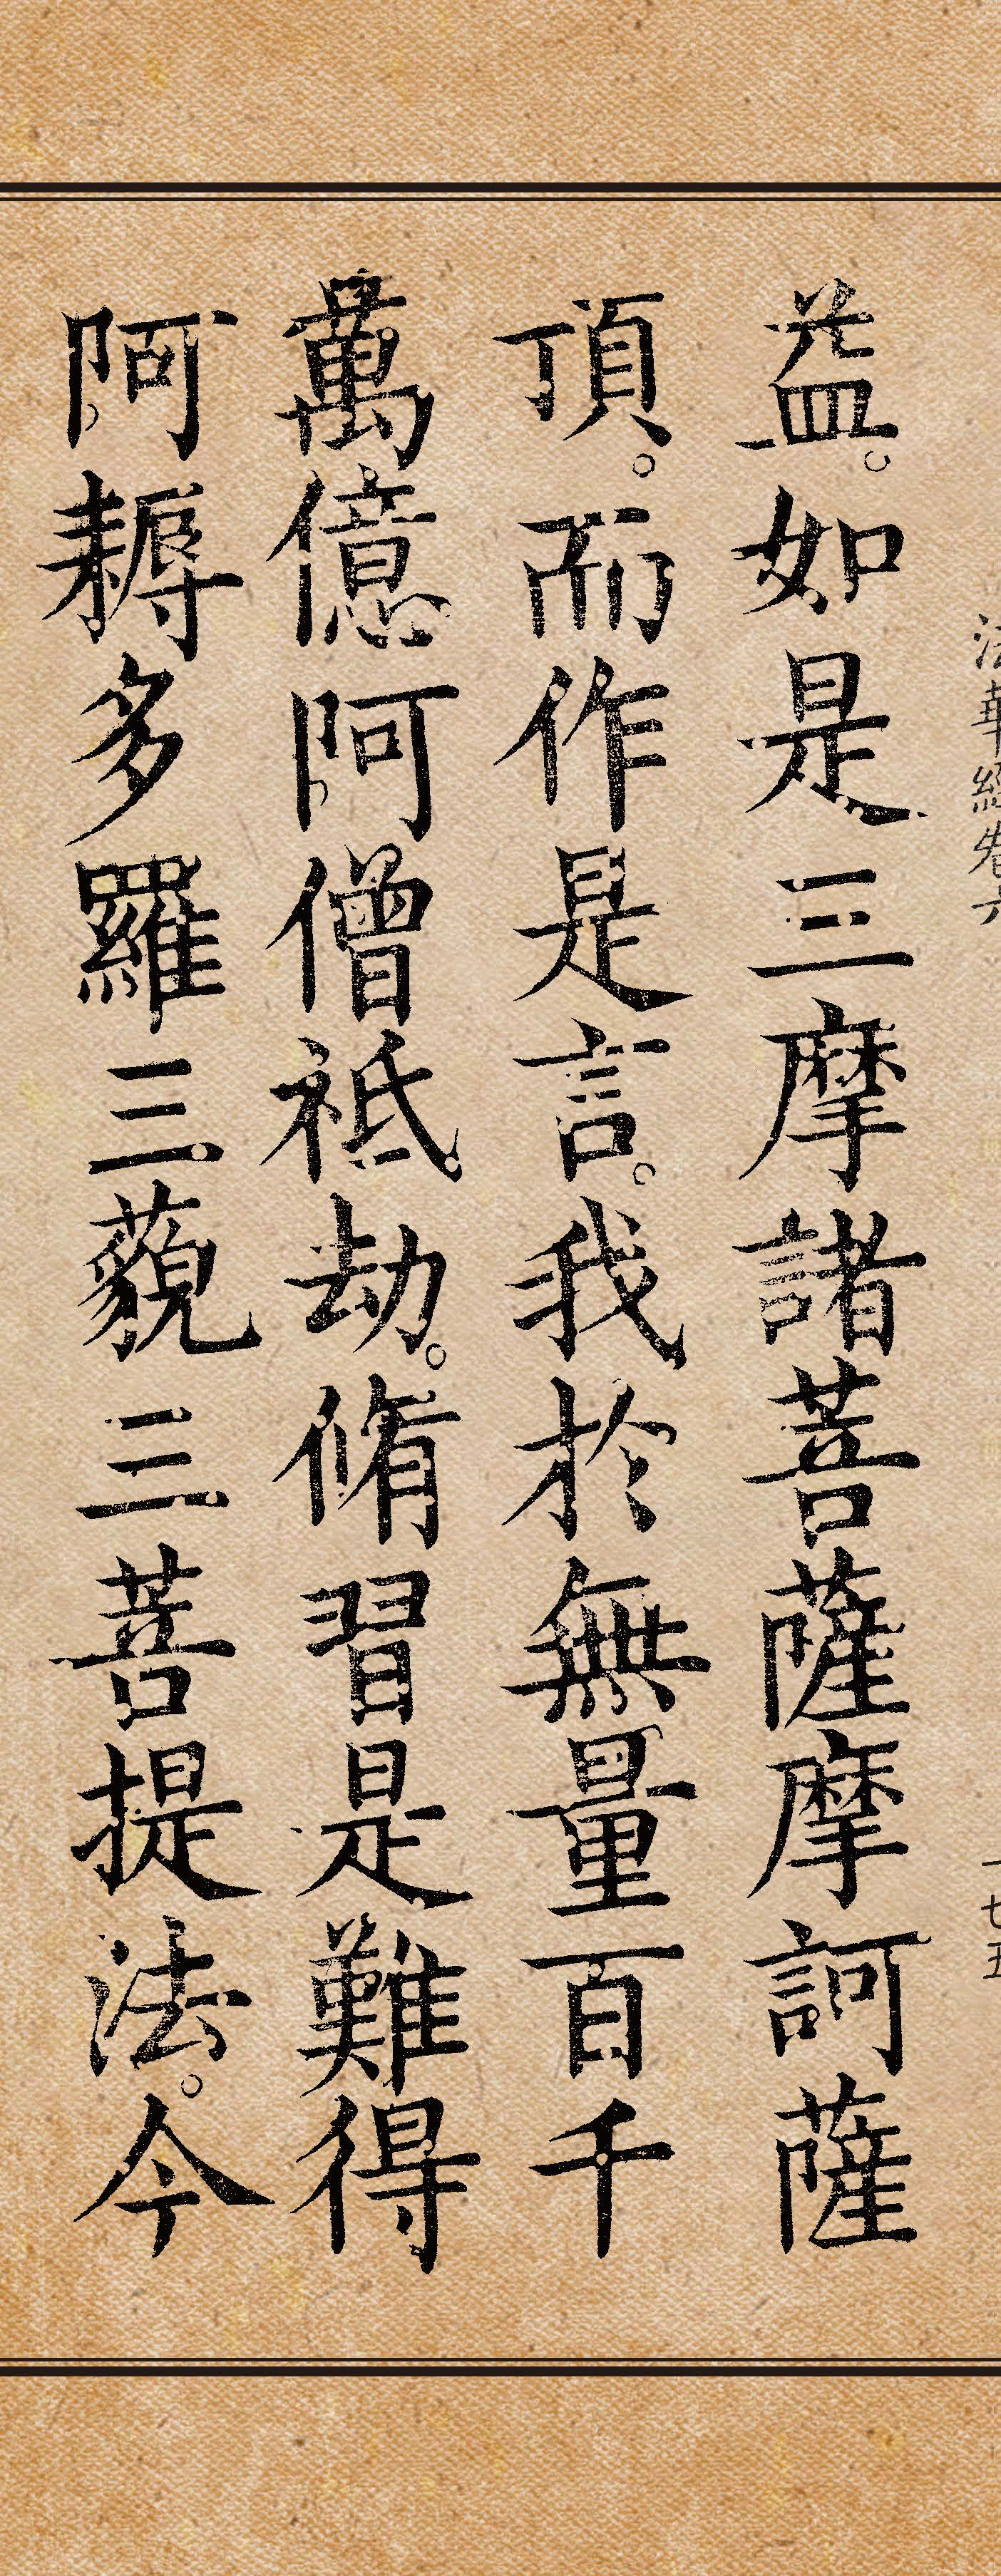 法華經卷六
一七五
益。如是三摩諸菩薩摩訶薩
頂。而作是言。我於無量百千
萬億阿僧祗劫。脩習是難得
阿耨多羅三藐三菩提法。今